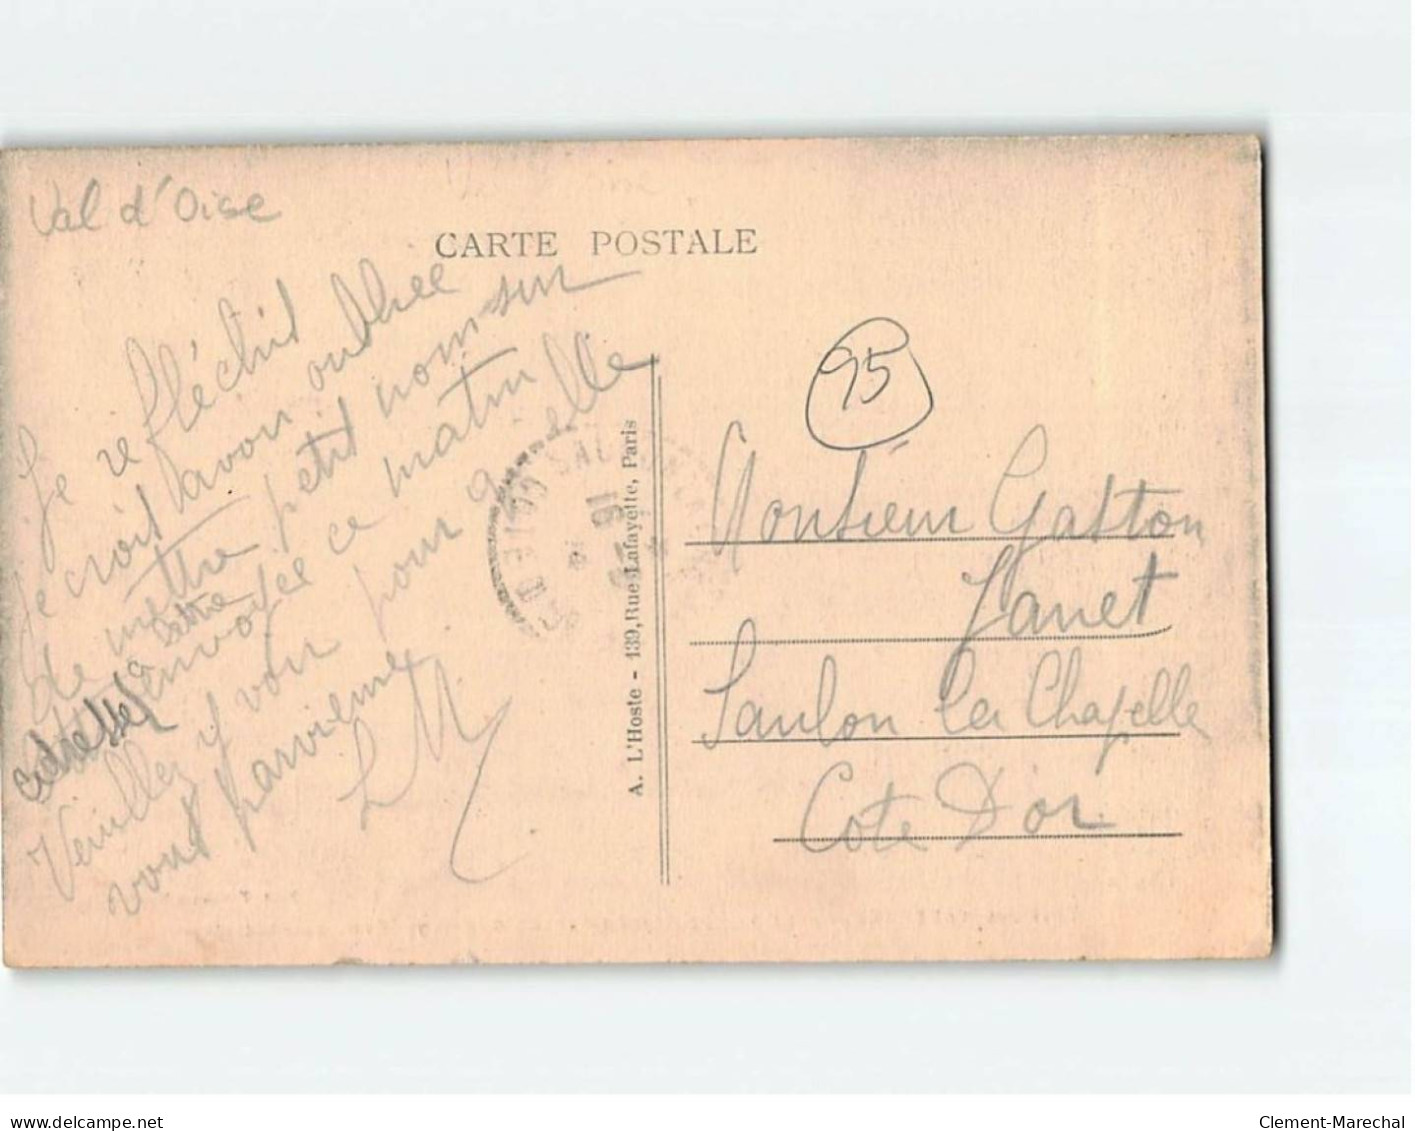 Val d'Oise
CARTE POSTALE
Je refléchit
Je croit avoir oubliee
de mettre petit nom sur
la lettre
adresser envoyée ce matin
Veuillez y voir pour qelle
vous parvienne
LM
A. L'Hoste - 139, Rue Lafayette, Paris
95
Monsieur Gaston
Janet
Saulon la Chapelle
Cote D'or
delcampe.net
Clement-Marechal